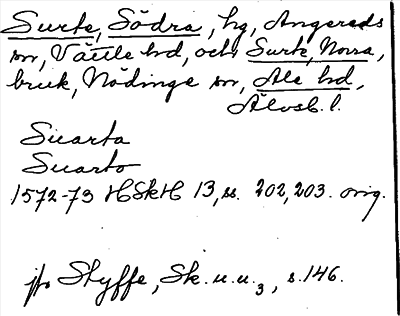 Surte, Södra, hg, Angereds
sn, Vättle hd, och Surte, Norra,
bruk, Nödinge sn, Ale hd,
Älvsb. l.
Suarta
Suarto
1572-73 HSkH 13, ss. 202, 203. orig.
jfr Styffe, Sk. u. u. 3, s. 146.